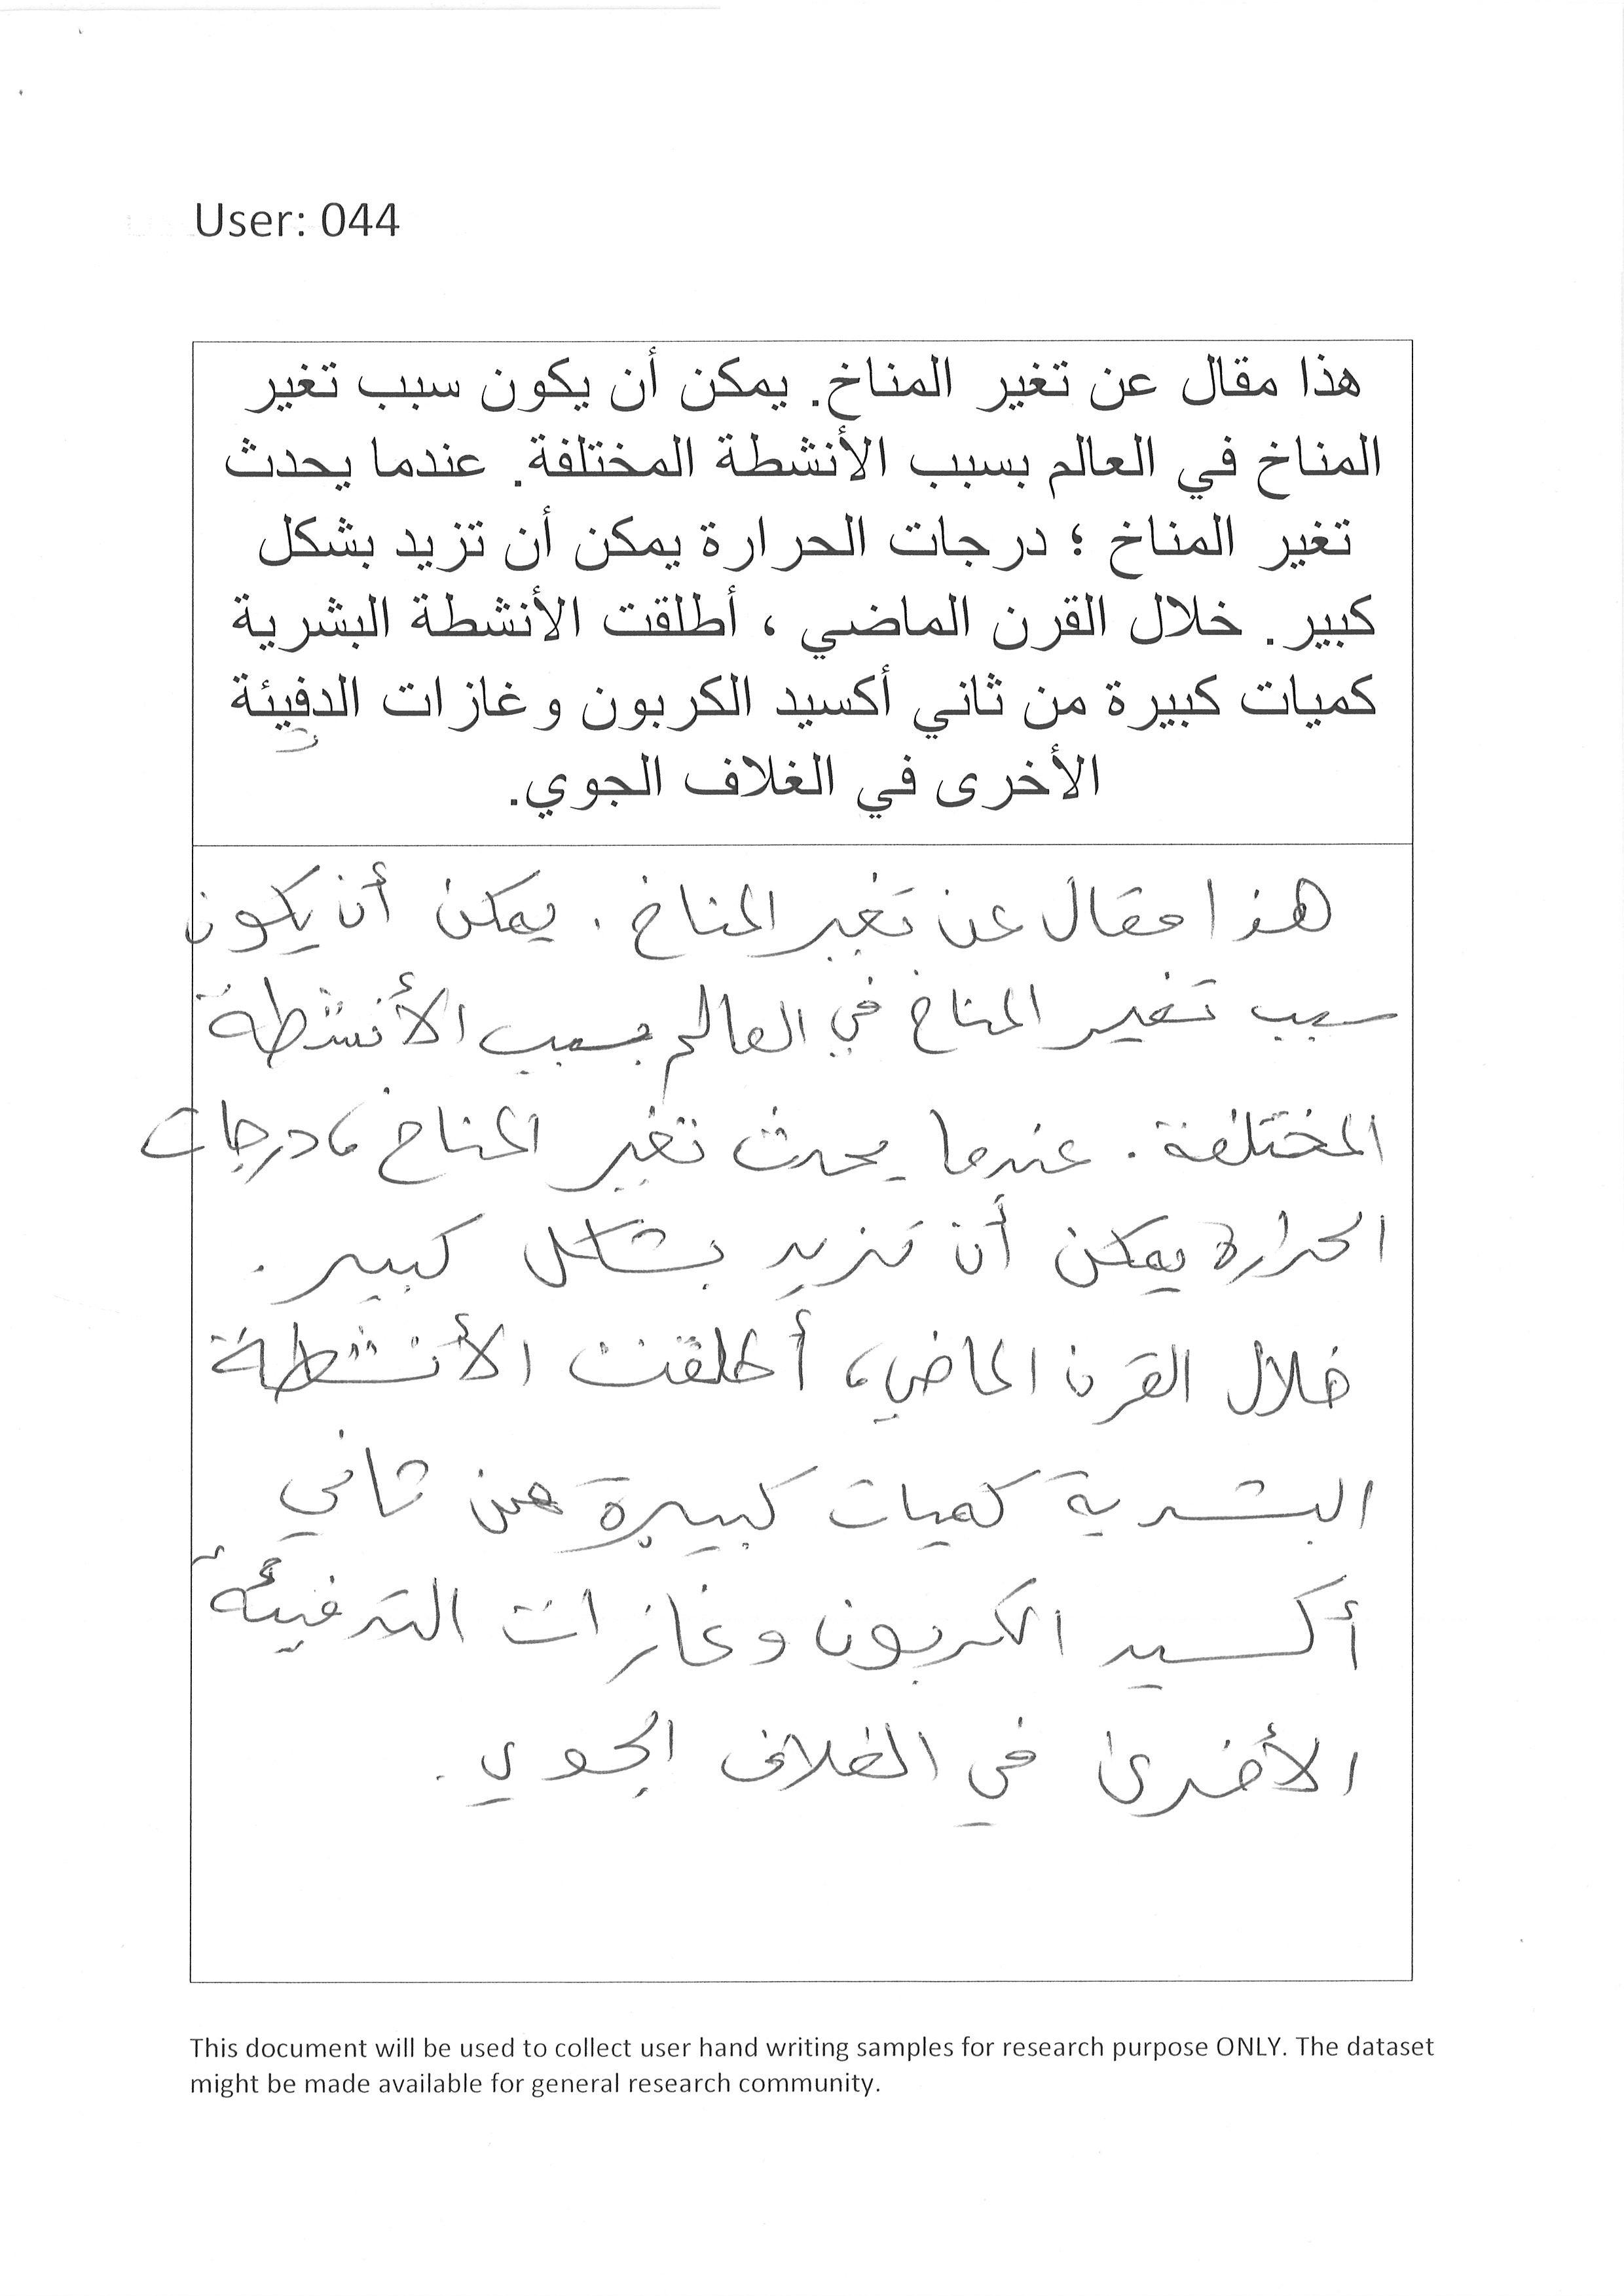 User: 044
هذا مقال عن تغير المناخ. يمكن أن يكون سبب تغير
المناخ في العالم بسبب الأنشطة المختلفة. عندما يحدث
تغير المناخ ؛ درجات الحرارة يمكن أن تزيد بشكل
كبير. خلال القرن الماضي ، أطلقت الأنشطة البشرية
كميات كبيرة من ثاني أكسيد الكربون وغازات الدفيئة
الأخرى في الغلاف الجوي.
هذا مقال عن تغير المناخ. يمكن أن يكون
سبب تغير المناخ في العالم بسبب الأنشطة
المختلفة. عندما يحدث تغير المناخ، درجات
الحرارة يمكن أن تزيد بشكل كبير.
خلال القرن الماضي، أطلقت الأنشطة
البشرية كميات كبيرة من ثاني
أكسيد الكربون وغازات الدفيئة
الأخرى في الغلاف الجوي.
This document will be used to collect user hand writing samples for research purpose ONLY. The dataset
might be made available for general research community.